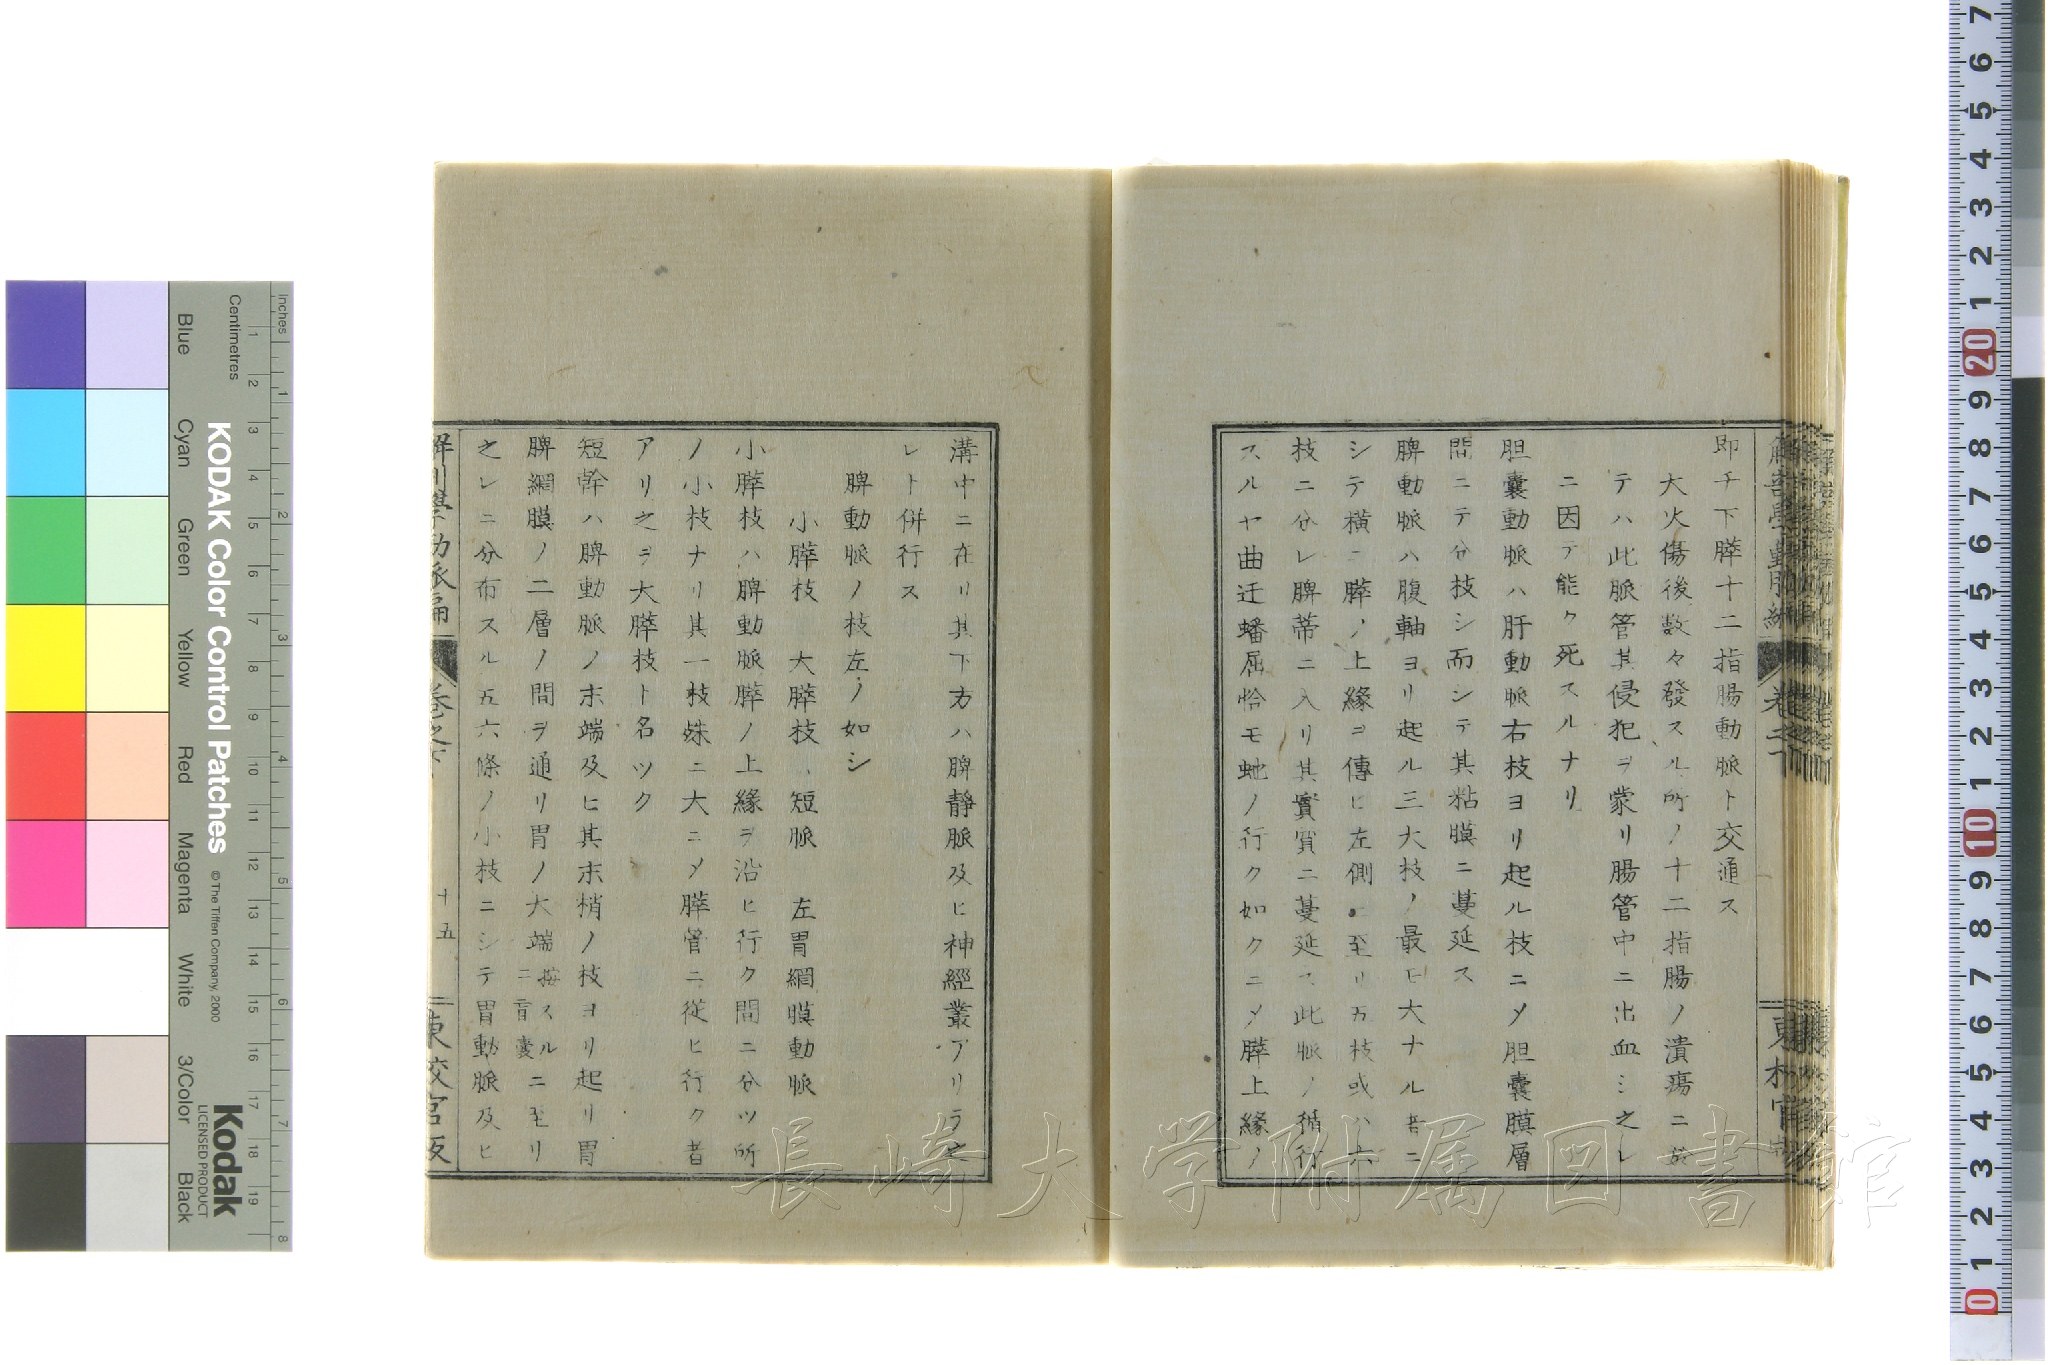 即チ下膵十二指腸動脈ト交通ス
大火傷後数々發スル所ノ十二指腸ノ潰瘍ニ於
テハ此脈管其侵犯ヲ蒙リ腸管中ニ出血シ之レ
ニ因テ能ク死スルナリ
胆嚢動脈ハ肝動脈右枝ヨリ起ル枝ニメ胆嚢膜層
間ニテ分枝シ而シテ其粘膜ニ蔓延ス
脾動脈ハ腹軸ヨリ起ル三大枝ノ最モ大ナル者ニ
シテ横ニ膵ノ上緣ヲ傳ヒ左側ニ至リ五枝或ハ六
枝ニ分レ脾蒂ニ入リ其實質ニ蔓延ス此脈ノ循行
スルヤ曲迂蟠屈恰モ虵ノ行ク如クニメ膵上緣ノ
溝中ニ在リ其下方ハ脾靜脈及ヒ神經叢アリテ之
レト併行ス
脾動脈ノ枝左ノ如シ
小膵枝 大膵枝 短脈 左胃綱膜動脈
小膵枝ハ脾動脈膵ノ上緣ヲ沿ヒ行ク間ニ分ツ所
ノ小枝ナリ其一枝姝ニ大ニメ膵管ニ從ヒ行ク者
アリ之ヲ大膵枝ト名ツク
短幹ハ脾動脈ノ末端及ヒ其末梢ノ枝ヨリ起リ胃
脾綱膜ノ二層ノ間ヲ通リ胃ノ大端按スルニ盲嚢ニ至リ
之レニ分布スル五六條ノ小枝ニシテ胃動脈及ヒ
解剖學動脈編
卷之下
十五
東校官版
長崎大学附属図書館
KODAK Color Control Patches
© The Tiffen Company, 2000
Kodak
LICENSED PRODUCT
Inches
Centimetres
Blue
Cyan
Green
Yellow
Red
Magenta
White
3/Color
Black